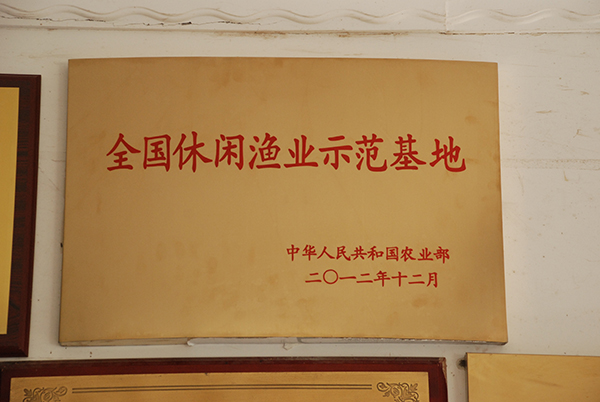 全国休闲渔业示范基地
中华人民共和国农业部
二〇一二年十二月